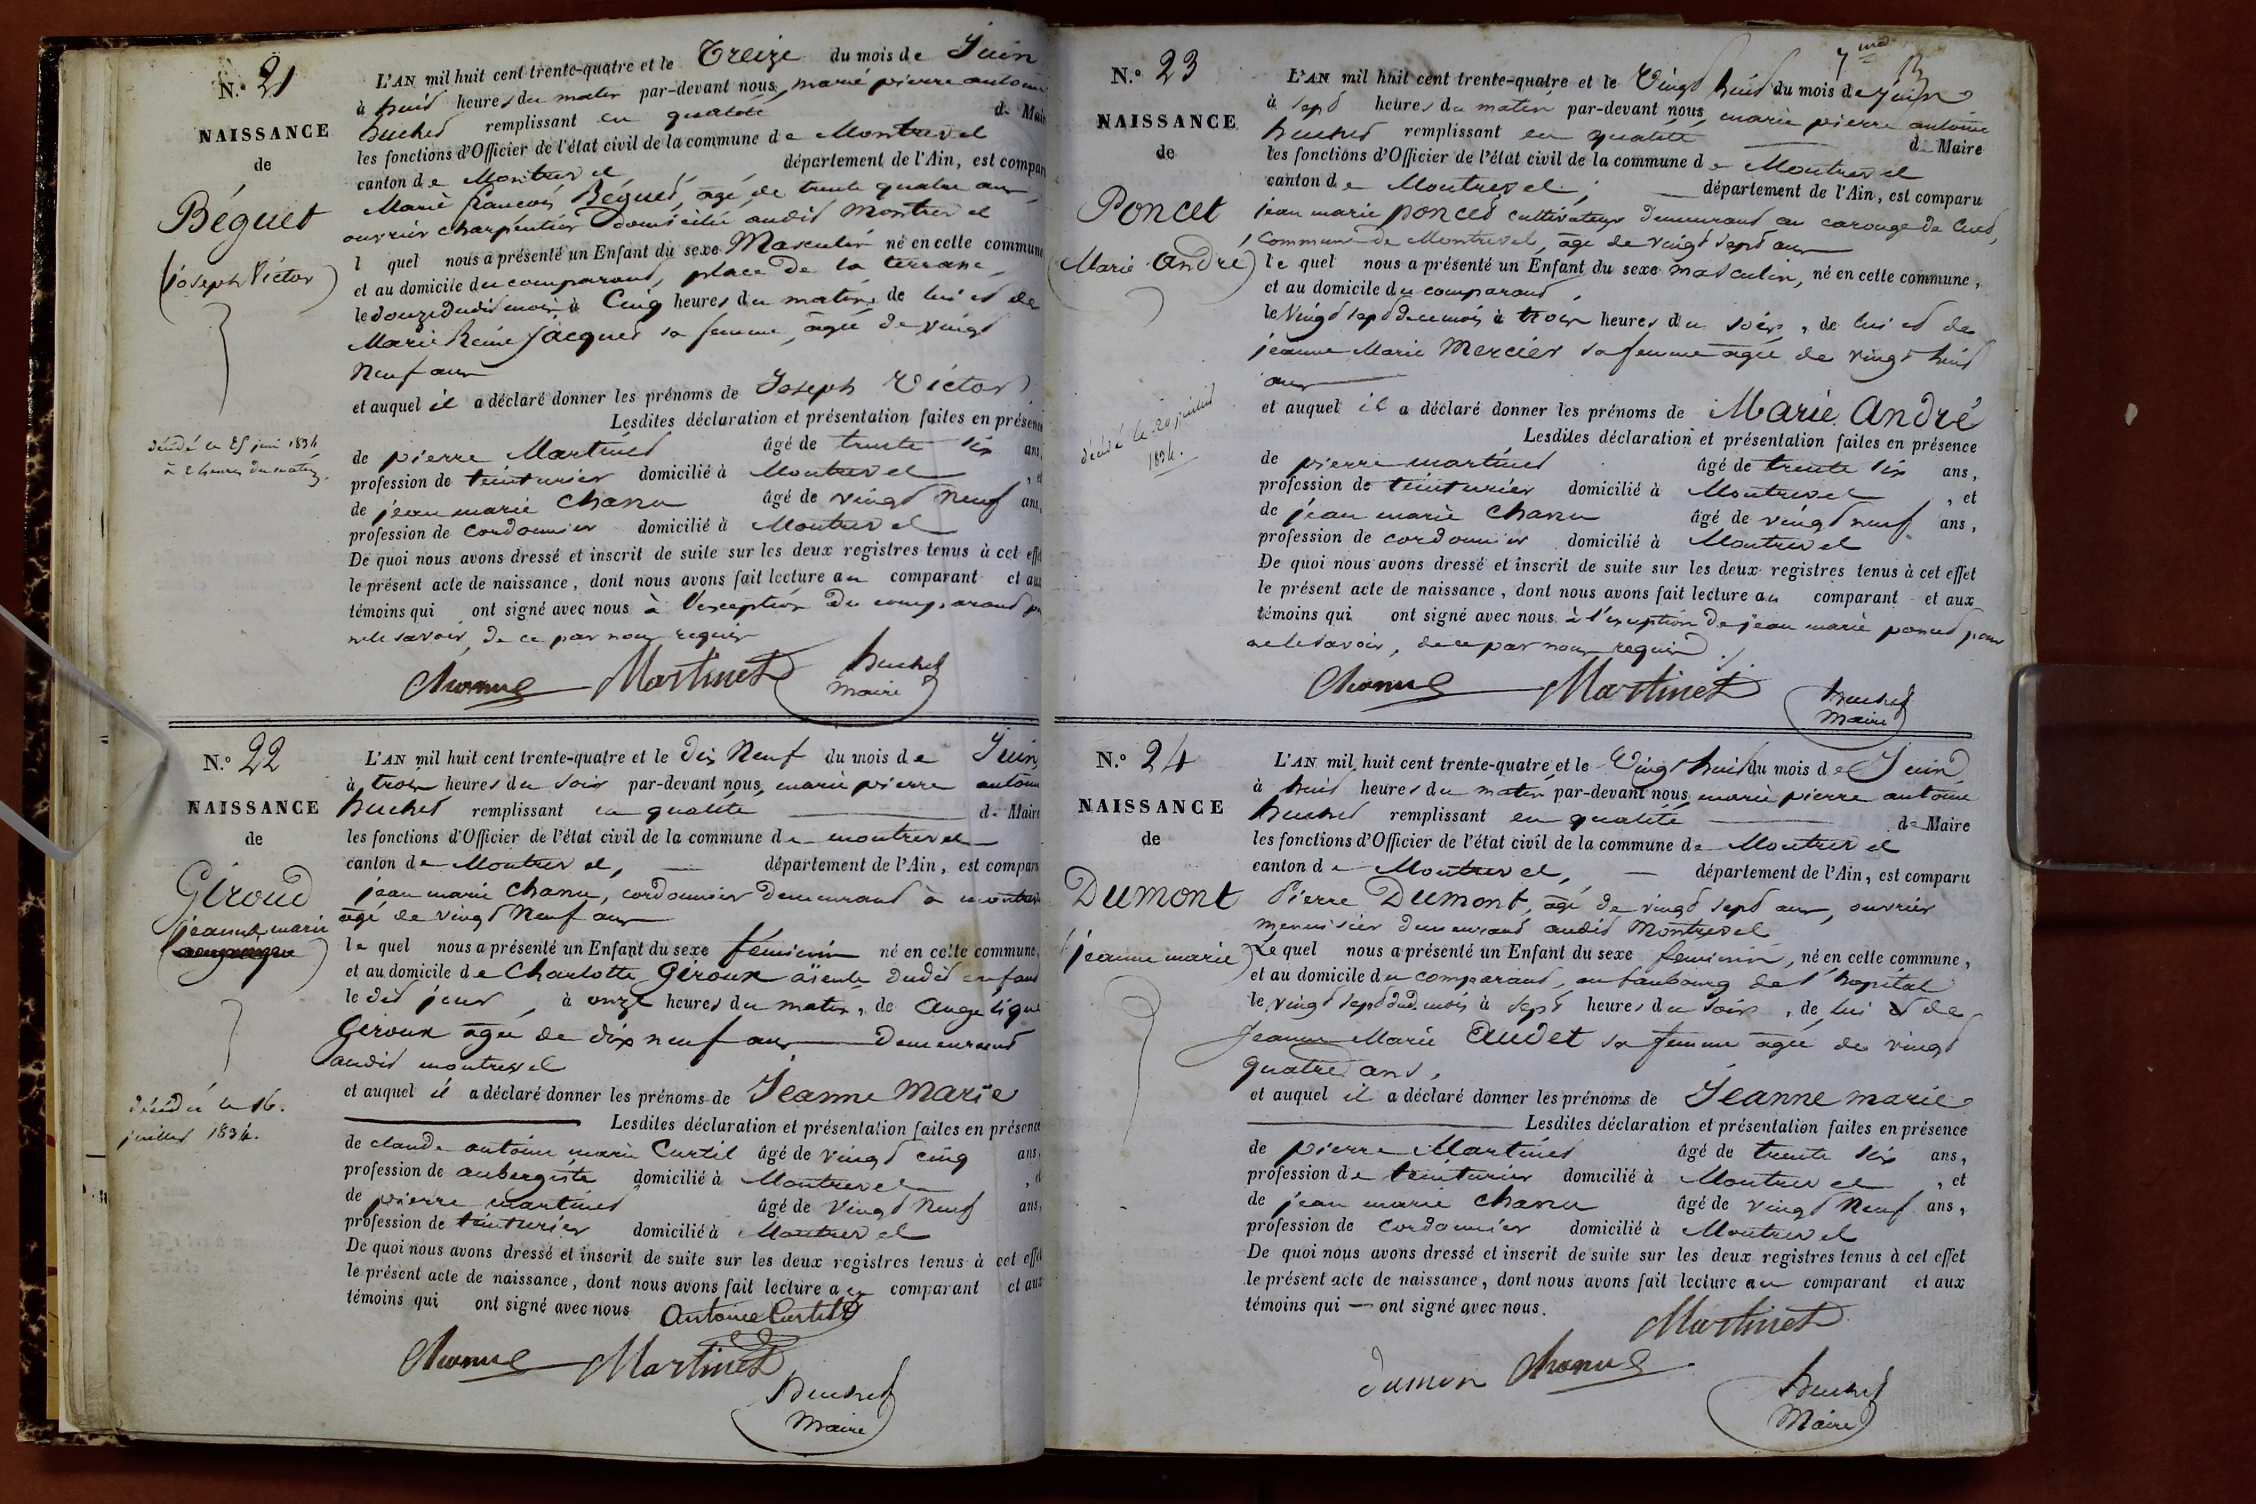 N.° 21
NAISSANCE
de
Béguet
(joseph Victor)
décédé le 25 juin 1834
à 2 heures du matin
L'AN mil huit cent trente-quatre et le Treize du mois de Juin
à huit heures du matin par-devant nous, marie pierre antoine
huchet remplissant en qualité de Mair
les fonctions d'Officier de l'état civil de la commune de Montrevel
canton de Montrevel département de l'Ain, est compar
Marie francois Béguet, agé de trente quatre ans,
ouvrier charpentier domicilié audit Montrevel
l quel nous a présenté un Enfant du sexe Masculin né en cette commune
et au domicile du comparant, place de la terrasse,
le douze dudit mois à Cinq heures du matin, de lui et de
Marie Reine Jacquet sa femme, agée de vingt
Neuf ans
et auquel il a déclaré donner les prénoms de Joseph Victor
Lesdites déclaration et présentation faites en présence
de pierre Martinet âgé de trente six ans,
profession de teinturier domicilié à Montrevel , et
de jean marie Chanu âgé de vingt Neuf ans,
profession de cordonnier domicilié à Montrevel
De quoi nous avons dressé et inscrit de suite sur les deux registres tenus à cet effet
le présent acte de naissance, dont nous avons fait lecture au comparant et aux
témoins qui ont signé avec nous à l'exception du comparant pr
ne le savoir, de ce par nous requis
Chanu Martinet huchet
maire
N.° 22
NAISSANCE
de
Giroud
jeanne marie
décédée le 16.
juillet 1834.
L'AN mil huit cent trente-quatre et le dix Neuf du mois de Juin
à trois heures du soir par-devant nous, marie pierre antoine
huchet remplissant en qualité de Maire
les fonctions d'Officier de l'état civil de la commune de montrevel
canton de Montrevel, département de l'Ain, est comparu
jean marie Chanu, cordonnier demeurant à montrevel
agé de vingt Neuf ans
le quel nous a présenté un Enfant du sexe féminin né en cette commune,
et au domicile de Charlotte Giroux aïeule dudit enfant
le dit jour, à onze heures du matin, de Angelique
Giroux agée de dix neuf ans demeurant
audit montrevel
et auquel il a déclaré donner les prénoms de Jeanne Marie
Lesdites déclaration et présentation faites en présence
de claude antoine marie Curtil âgé de vingt cinq ans,
profession de aubergiste domicilié à Montrevel , et
de pierre martinet âgé de vingt Neuf ans,
profession de teinturier domicilié à Montrevel
De quoi nous avons dressé et inscrit de suite sur les deux registres tenus à cet effet
le présent acte de naissance, dont nous avons fait lecture au comparant et aux
témoins qui ont signé avec nous Antoine Curtil
Chanu Martinet
Huchet
maire
N.° 23
NAISSANCE
de
Poncet
(Marie André)
décédé le 20 juillet
1834.
7me
L'AN mil huit cent trente-quatre et le Vingt huit du mois de juin
à sept heures du matin par-devant nous marie pierre antoine
huchet remplissant en qualité de Maire
les fonctions d'Officier de l'état civil de la commune de Montrevel
canton de Montrevel, département de l'Ain, est comparu
jean marie poncet cultivateur demeurant au carouge de Cuet,
Commune de Montrevel, agé de vingt sept ans
le quel nous a présenté un Enfant du sexe masculin, né en cette commune,
et au domicile du comparant,
le Vingt sept de ce mois à trois heures du soir, de lui et de
jeanne Marie Mercier sa femme agée de vingt huit
ans
et auquel il a déclaré donner les prénoms de Marie André
Lesdites déclaration et présentation faites en présence
de pierre martinet âgé de trente six ans,
profession de teinturier domicilié à Montrevel , et
de jean marie Chanu âgé de vingt neuf ans,
profession de cordonnier domicilié à Montrevel
De quoi nous avons dressé et inscrit de suite sur les deux registres tenus à cet effet
le présent acte de naissance, dont nous avons fait lecture au comparant et aux
témoins qui ont signé avec nous à l'exception de jean marie poncet pour
ne le savoir, de ce par nous requis
Chanu Martinet huchet
Maire
N.° 24
NAISSANCE
de
Dumont
jeanne marie
L'AN mil huit cent trente-quatre et le Vingt huit du mois de Juin
à huit heures du matin par-devant nous, marie pierre antoine
huchet remplissant en qualité de Maire
les fonctions d'Officier de l'état civil de la commune de Montrevel
canton de Montrevel, département de l'Ain, est comparu
Pierre Dumont, agé de vingt sept ans, ouvrier
menuisier demeurant audit Montrevel
Le quel nous a présenté un Enfant du sexe feminin, né en cette commune,
et au domicile du comparant, au faubourg de l'hopital
le vingt sept dud. mois à sept heures du soir, de lui et de
Jeanne Marie Audet sa femme agée de vingt
quatre ans,
et auquel il a déclaré donner les prénoms de Jeanne marie
Lesdites déclaration et présentation faites en présence
de pierre Martinet âgé de trente six ans,
profession de teinturier domicilié à Montrevel , et
de jean marie Chanu âgé de vingt Neuf ans,
profession de cordonnier domicilié à Montrevel
De quoi nous avons dressé et inscrit de suite sur les deux registres tenus à cet effet
le présent acte de naissance, dont nous avons fait lecture au comparant et aux
témoins qui ont signé avec nous.
Martinet
dumon Chanu
huchet
Maire